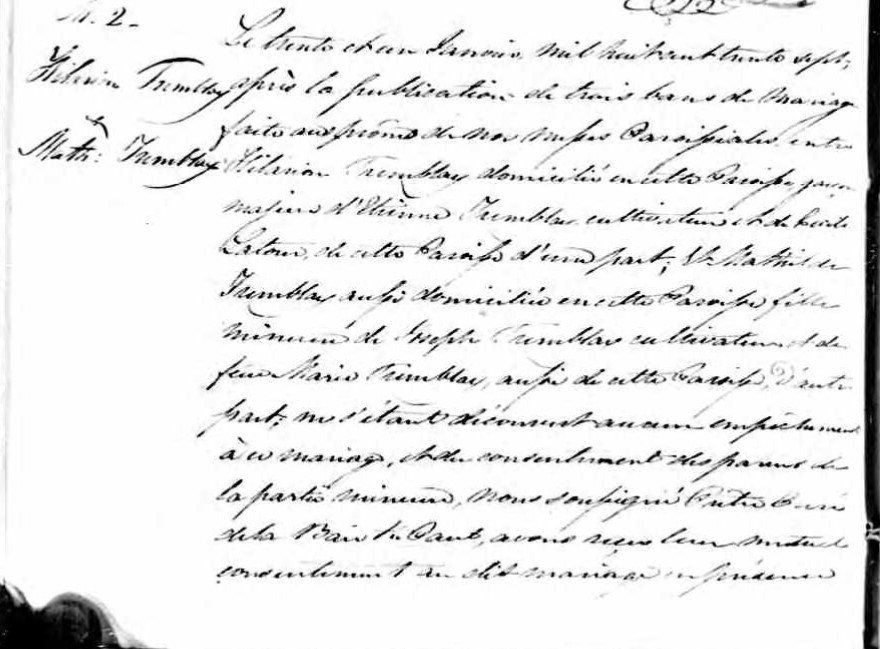 M. 2-
Hilarion Tremblay
&
Math: Tremblay
Le trente et un Janvier, mil huit cent trente sept,
après la publication de trois bans de mariage
faite aux prônes de nos messes Paroissiales, entre
Hilarion Tremblay domicilié en cette Paroisse, garçon
majeur d'Etienne Tremblay cultivateur et de
Latour, de cette Paroisse d'une part; & Mathilde
Tremblay aussi domiciliée en cette Paroisse fille
mineure de Joseph Tremblay cultivateur et de
feue Marie Tremblay, aussi de cette Paroisse, d'autre
part; ne s'étant découvert aucun empêchement
à ce mariage, et du consentement des parens de
la partie mineure, nous soussigné Prêtre Curé
de la Baie St. Paul, avons reçu leur mutuel
consentement au dit mariage en présence